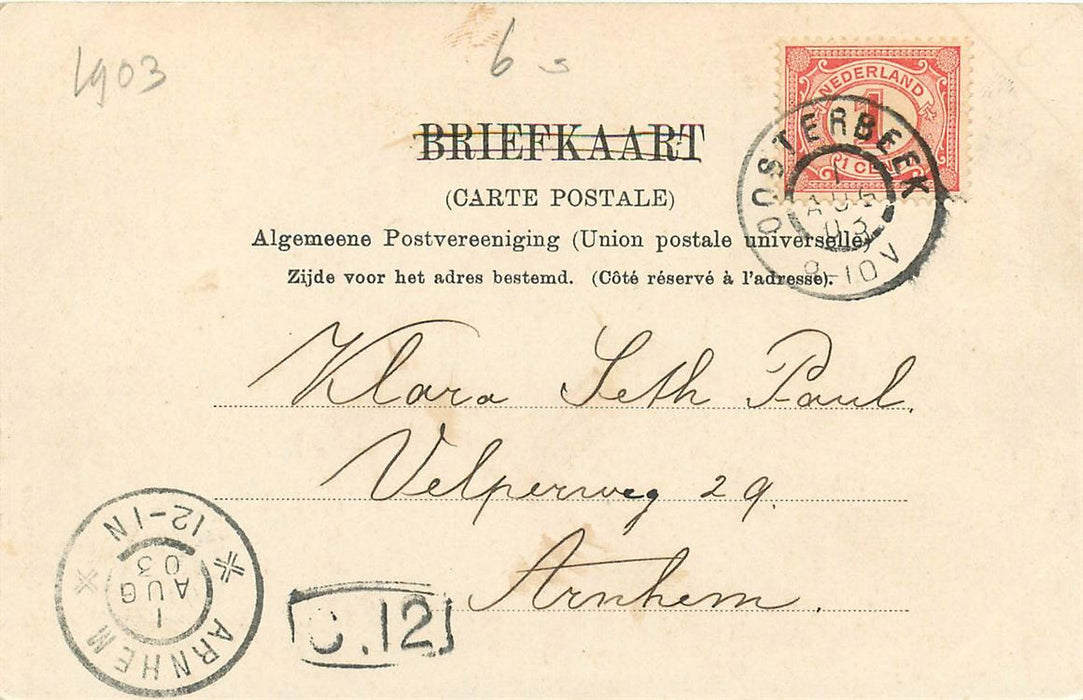 1903
6 s
NEDERLAND
1
1 CENT
OOSTERBEEK
1
AUG
03
9-10V
BRIEFKAART
(CARTE POSTALE)
Algemeene Postvereeniging (Union postale universelle)
Zijde voor het adres bestemd. (Côté réservé à l'adresse).
Klara Seth Paul.
Velperweg 29.
Arnhem.
12-1N
1
AUG
03
ARNHEM
.12